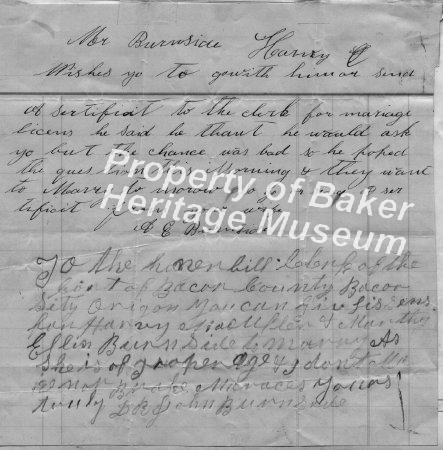 Mr Burnside Harvy
Wishes yo to go with him or send
a sertificit to the clerk for mariage
licens he said he thaut he would ask
yo but the chance was bad so he poped
the question this morning & they want
to Marry to morow
Property of Baker
Heritage Museum
To the honerbill Clerk of the
Cort of Bacor County Bacor
Sity Origon You can giv
Harvy & Martha
Ellin Burnside to marry As
She is of proper age & I don't
nor Brake Maraces Yours
truly John Burnside